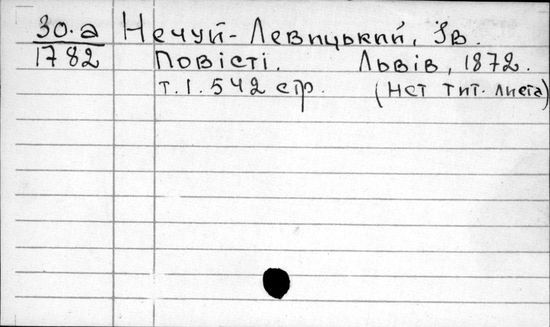 30.а Нечуй-Левицький, Ів.
1782 Повісті. Львів, 1872.
т.1. 542 стр. (нет тит. листа)